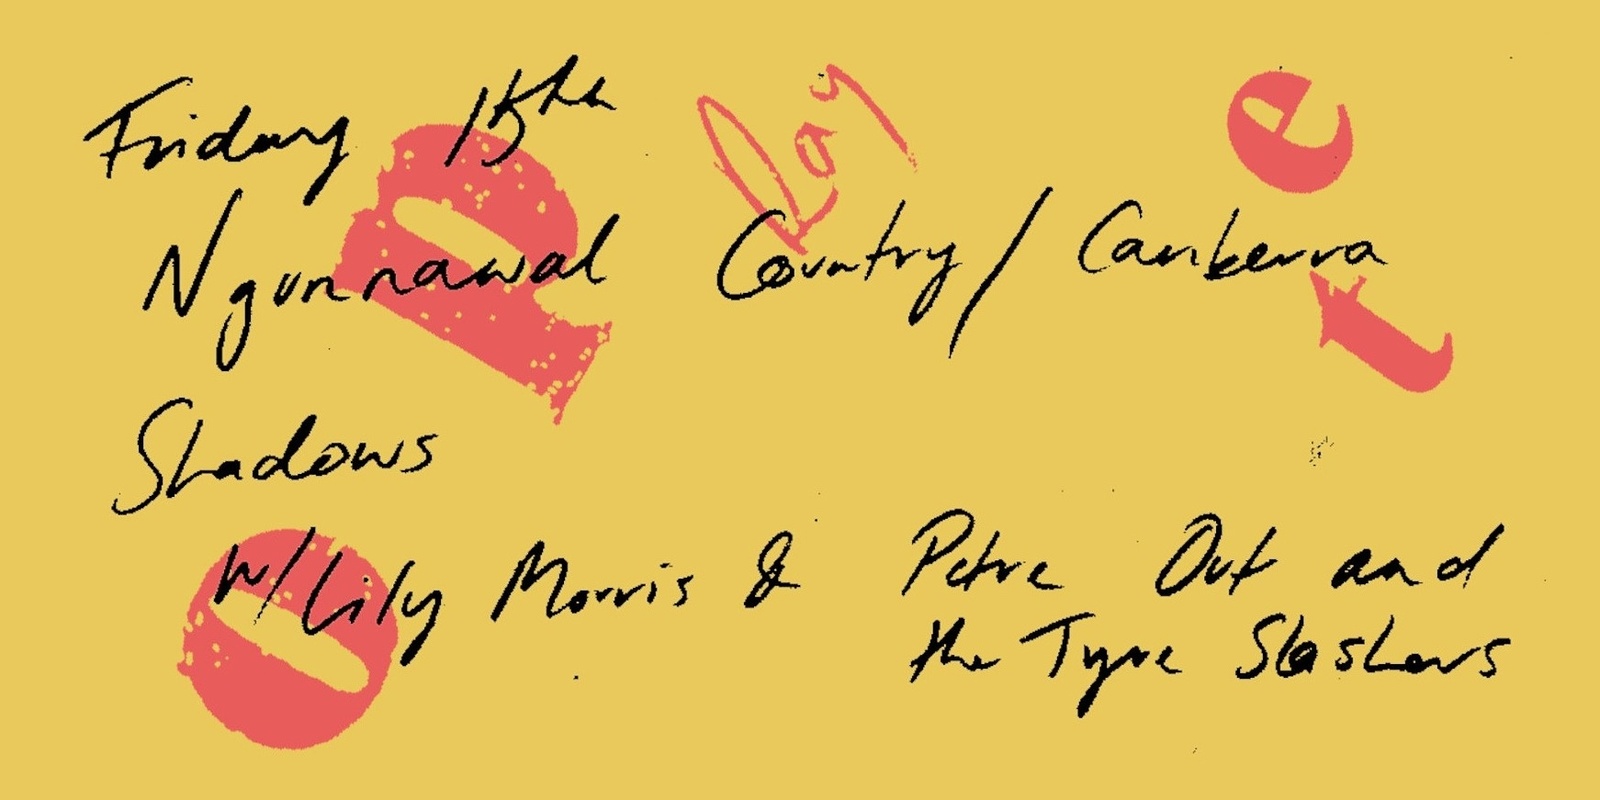 Friday 15th
Ngunnawal Country / Canberra
Shadows
w/ Lily Morris & Petre Out and
the Tyre Slashers
P
o
e
t